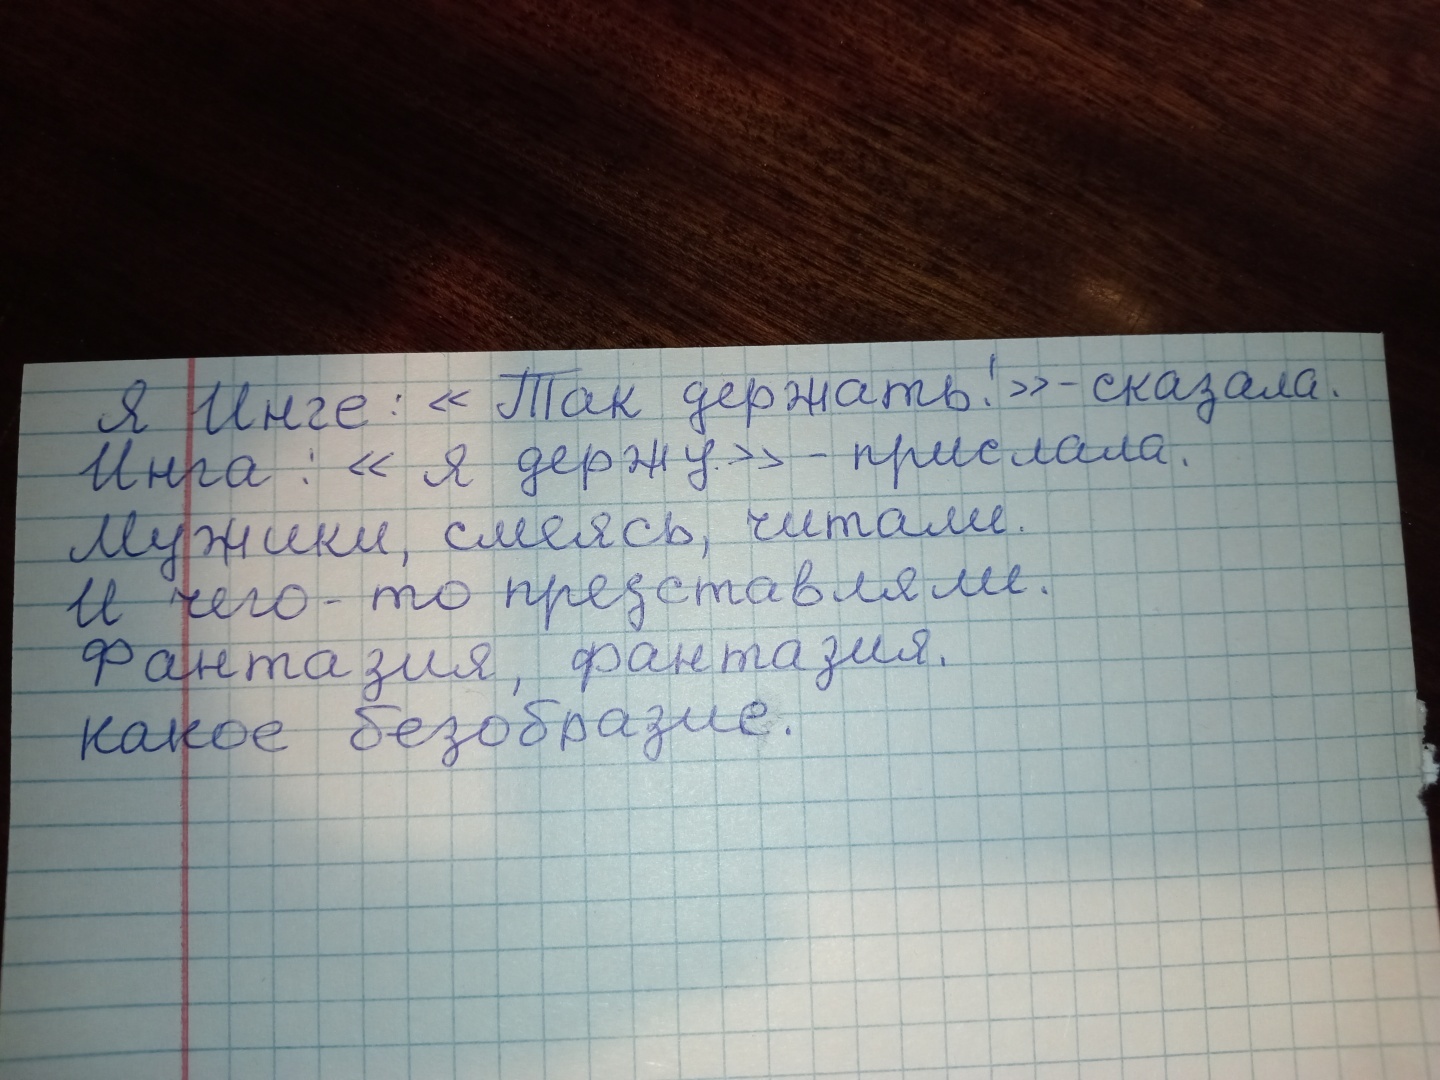 Я Инге: « Так держать!» - сказала.
Инга : « я держу.» - прислала.
Мужики, смеясь, читали.
И чего-то представляли.
Фантазия, фантазия.
какое безобразие.